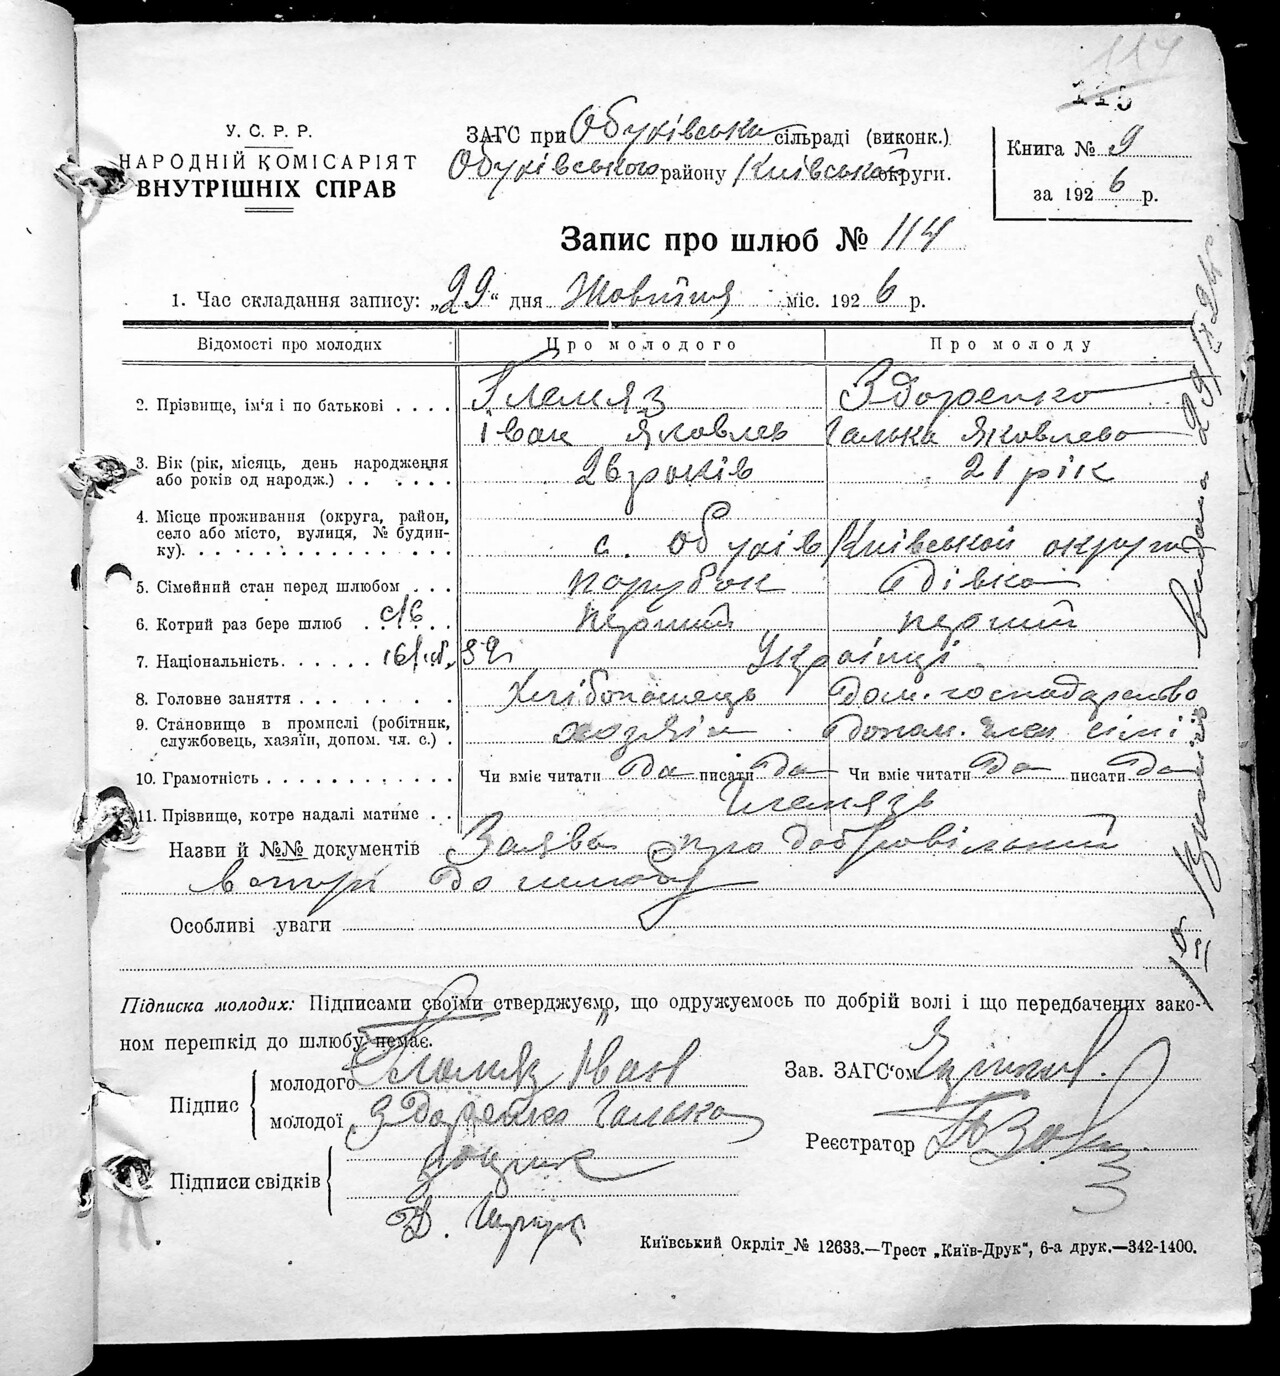 114
115
У. С. Р. Р.
НАРОДНІЙ КОМІСАРІЯТ
ВНУТРІШНІХ СПРАВ
ЗАГС при Обухівська сільраді (виконк.)
Обухівського району Київської округи.
Книга № 9
за 1926 р.
Запис про шлюб № 114
1. Час складання запису: „29“ дня Жовтня міс. 1926 р.
Відомості про молодих Про молодого Про молоду
2. Прізвище, ім'я і по батькові . . . . Гленяз Здоренко
Іван Яковлев Галька Яковлева
3. Вік (рік, місяць, день народження
або років од народж.) . . . . . . 26 років 21 рік
4. Місце проживання (округа, район,
село або місто, вулиця, № будин-
ку). . . . . . . . . . . . . . с. Обухів Київської округи
5. Сімейний стан перед шлюбом . . . парубок дівка
6. Котрий раз бере шлюб . . . . . перший перший
7. Національність. . . . . . Українці
8. Головне заняття . . . . . . . . Хлібопашець Дом. господарство
9. Становище в промислі (робітник,
службовець, хазяїн, допом. чл. с.) . хозяїн допом. член сімї
10. Грамотність . . . . . . . . . . Чи вміє читати Да писати Да Чи вміє читати Да писати Да
11. Прізвище, котре надалі матиме . . Гленязь
Назви й №№ документів Заява про добровільний
вступ до шлюбу
Особливі уваги
Підписка молодих: Підписами своїми стверджуємо, що одружуємось по добрій волі і що передбачених зако-
ном перешкід до шлюбу немає.
Підпис
молодого Гленяз Іван
молодої Здоренко Галька
Зав. ЗАГС'ом
Реєстратор
Підписи свідків
Київський Окрліт № 12633.—Трест „Київ-Друк“, 6-а друк.—342-1400.